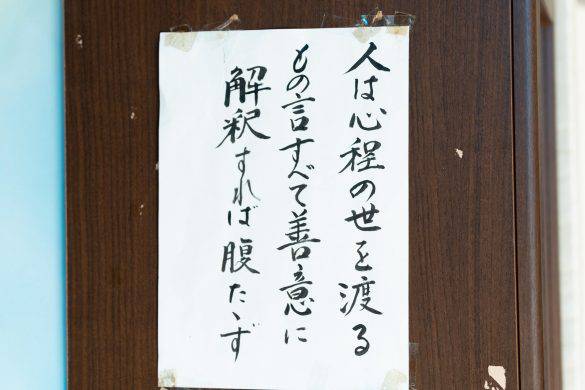 人は心程の世を渡る
もの言すべて善意に
解釈すれば腹たゝず